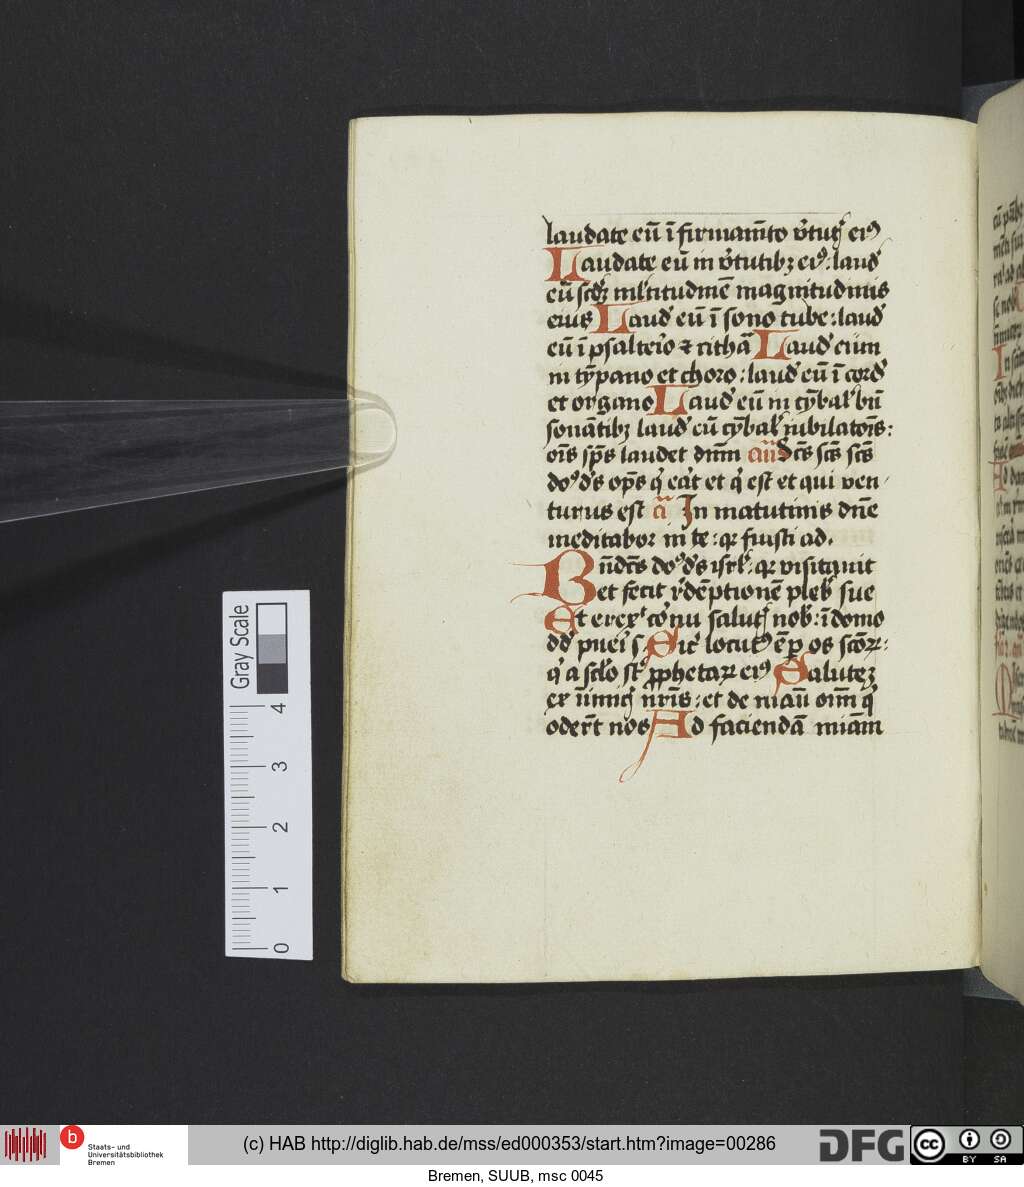 laudate eū ī firmamēto v̄tutꝭ eiꝰ
Laudate eū in v̄tutibꝫ eiꝰ: laud
eū scd̄ꝫ ml̄titudinē magnitudinis
eius Laud eū ī sono tube: laud
eū ī psalteīo ⁊ cithā Laud eum
in tȳpano et choro: laud eū ī cord
et organo Laud eū in cȳbal̄ bn̄
sonātibꝫ laud eū cȳbal̄ iubilatōis:
oīs sp̄s laudet dnm̄ aiij Sc̄s sc̄s sc̄s
doꝰ ds̄ ops̄ q̄ eāt et q̄ est et qui ven
turus est ā In matutinis dn̄e
meditabor in te: qꝛ fuisti ad.
Bn̄dc̄s doꝰ ds̄ isrl̄: qꝛ visitauit
et fecit r̄dēptionē pleb̄ sue
Et erex̄ cornu salutꝭ nob̄: ī domo
dd̄ pueī s. Sic̄ locutꝰ ē ꝑ os scōꝝ:
q̄ a sclō st̄ ꝓphetaꝝ eiꝰ Salutē
ex īnimicꝭ nr̄is: et de manū oīm q̄
oder̄t nos Ad faciendā miām
Gray Scale
0 1 2 3 4
b
Staats- und
Universitätsbibliothek
Bremen
(c) HAB http://diglib.hab.de/mss/ed000353/start.htm?image=00286
DFG
cc BY SA
Bremen, SUUB, msc 0045